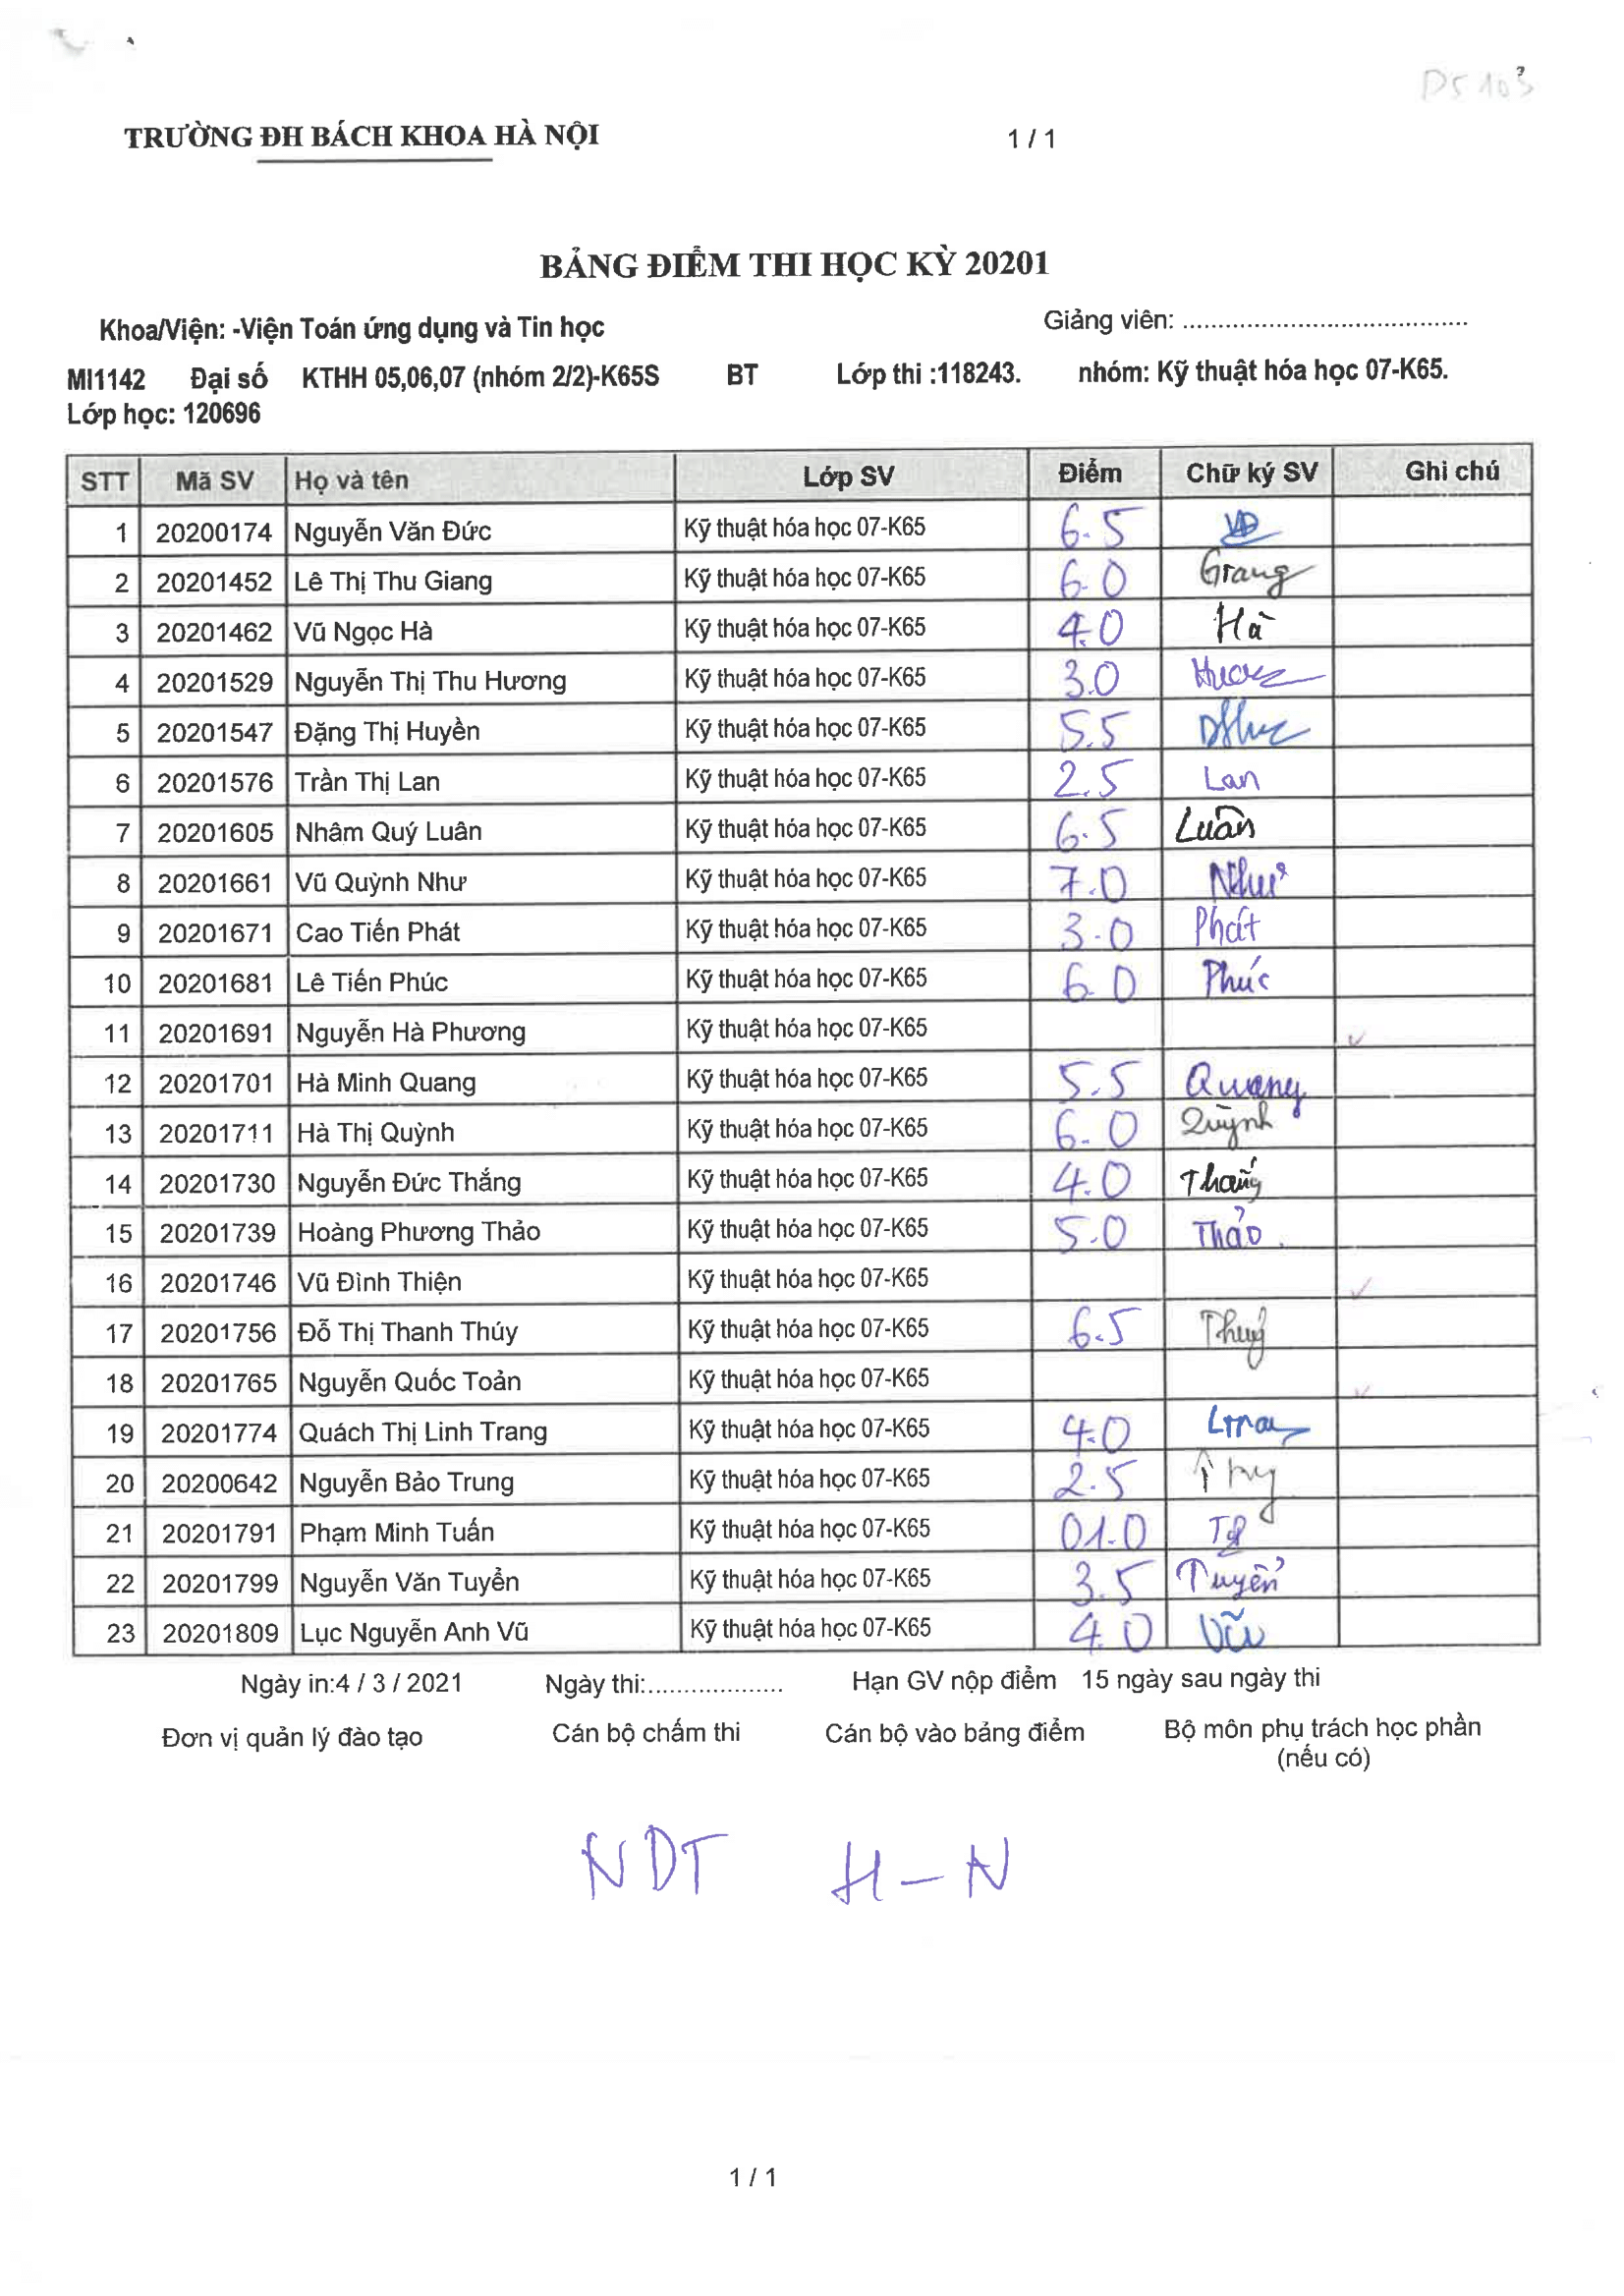 D5 103
TRƯỜNG ĐH BÁCH KHOA HÀ NỘI 1 / 1
BẢNG ĐIỂM THI HỌC KỲ 20201
Khoa/Viện: -Viện Toán ứng dụng và Tin học Giảng viên: ........................................
MI1142 Đại số KTHH 05,06,07 (nhóm 2/2)-K65S BT Lớp thi :118243. nhóm: Kỹ thuật hóa học 07-K65.
Lớp học: 120696
STT Mã SV Họ và tên Lớp SV Điểm Chữ ký SV Ghi chú
1 20200174 Nguyễn Văn Đức Kỹ thuật hóa học 07-K65 6.5 VĐ
2 20201452 Lê Thị Thu Giang Kỹ thuật hóa học 07-K65 6.0 Giang
3 20201462 Vũ Ngọc Hà Kỹ thuật hóa học 07-K65 4.0 Hà
4 20201529 Nguyễn Thị Thu Hương Kỹ thuật hóa học 07-K65 3.0
5 20201547 Đặng Thị Huyền Kỹ thuật hóa học 07-K65 5.5
6 20201576 Trần Thị Lan Kỹ thuật hóa học 07-K65 2.5 Lan
7 20201605 Nhâm Quý Luân Kỹ thuật hóa học 07-K65 6.5 Luân
8 20201661 Vũ Quỳnh Như Kỹ thuật hóa học 07-K65 7.0 Như
9 20201671 Cao Tiến Phát Kỹ thuật hóa học 07-K65 3.0 Phát
10 20201681 Lê Tiến Phúc Kỹ thuật hóa học 07-K65 6.0 Phúc
11 20201691 Nguyễn Hà Phương Kỹ thuật hóa học 07-K65 ✓
12 20201701 Hà Minh Quang Kỹ thuật hóa học 07-K65 5.5 Quang
13 20201711 Hà Thị Quỳnh Kỹ thuật hóa học 07-K65 6.0 Quỳnh
14 20201730 Nguyễn Đức Thắng Kỹ thuật hóa học 07-K65 4.0 Thắng
15 20201739 Hoàng Phương Thảo Kỹ thuật hóa học 07-K65 5.0 Thảo.
16 20201746 Vũ Đình Thiện Kỹ thuật hóa học 07-K65 ✓
17 20201756 Đỗ Thị Thanh Thúy Kỹ thuật hóa học 07-K65 6.5 Thuý
18 20201765 Nguyễn Quốc Toản Kỹ thuật hóa học 07-K65 ✓
19 20201774 Quách Thị Linh Trang Kỹ thuật hóa học 07-K65 4.0
20 20200642 Nguyễn Bảo Trung Kỹ thuật hóa học 07-K65 2.5
21 20201791 Phạm Minh Tuấn Kỹ thuật hóa học 07-K65 01.0
22 20201799 Nguyễn Văn Tuyển Kỹ thuật hóa học 07-K65 3.5 Tuyển
23 20201809 Lục Nguyễn Anh Vũ Kỹ thuật hóa học 07-K65 4.0 Vũ
Ngày in:4 / 3 / 2021 Ngày thi:................... Hạn GV nộp điểm 15 ngày sau ngày thi
Đơn vị quản lý đào tạo Cán bộ chấm thi Cán bộ vào bảng điểm Bộ môn phụ trách học phần
(nếu có)
NDT H-N
1 / 1